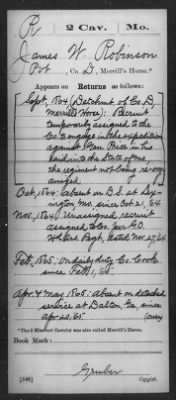 R | 2 Cav. | Mo.
James W. Robinson
Pvt, Co. D, Merrill's Horse.*
Appears on Returns as follows:
Sept. 1864 (Detachmt of Co. D,
Merrill's Horse): Recruit
temporarily assigned to the
Co. & engaged in the expedition
against Gen Price in his
raid into the State of Mo,
the regiment not being re-
Oct, 1864, absent on D.S. at Lex-
ington, Mo. since Oct 21, 64
Nov. 1864, Unassigned recruit
assigned to Co. per G.O.
Regt, dated Nov. 27, 64
Feb. 1865. On daily duty Co. Cook
since Feb 1, 65.
Apr. & May 1865. absent on detached
service at Dalton, Ga, since
Apr. 20, 65. (over)
*The 2 Missouri Cavalry was also called Merrill's Horse.
Book Mark:
Gruber
Copyist.